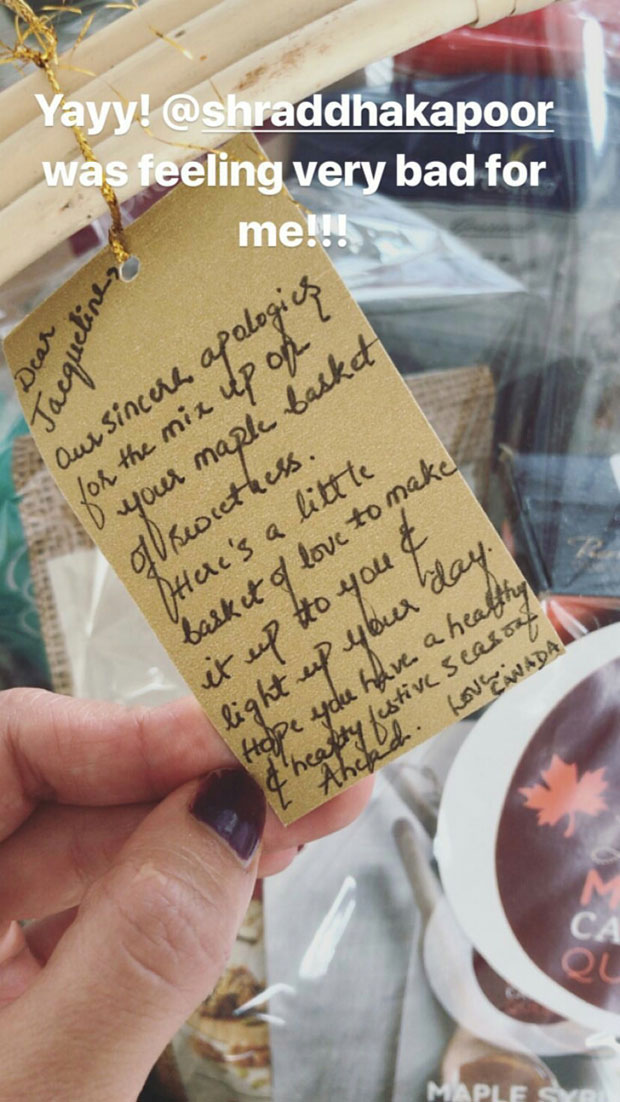 Yayy! @shraddhakapoor
was feeling very bad for
me!!!
Dear
Jacqueline,
Our sincere apologies
for the mix up of
your maple basket
of sweetness.
Here's a little
basket of love to make
it up to you &
light up your day.
Hope you have a healthy
& hearty festive season
Ahead.
Love,
CANADA
M
CA
QU
MAPLE SYRU